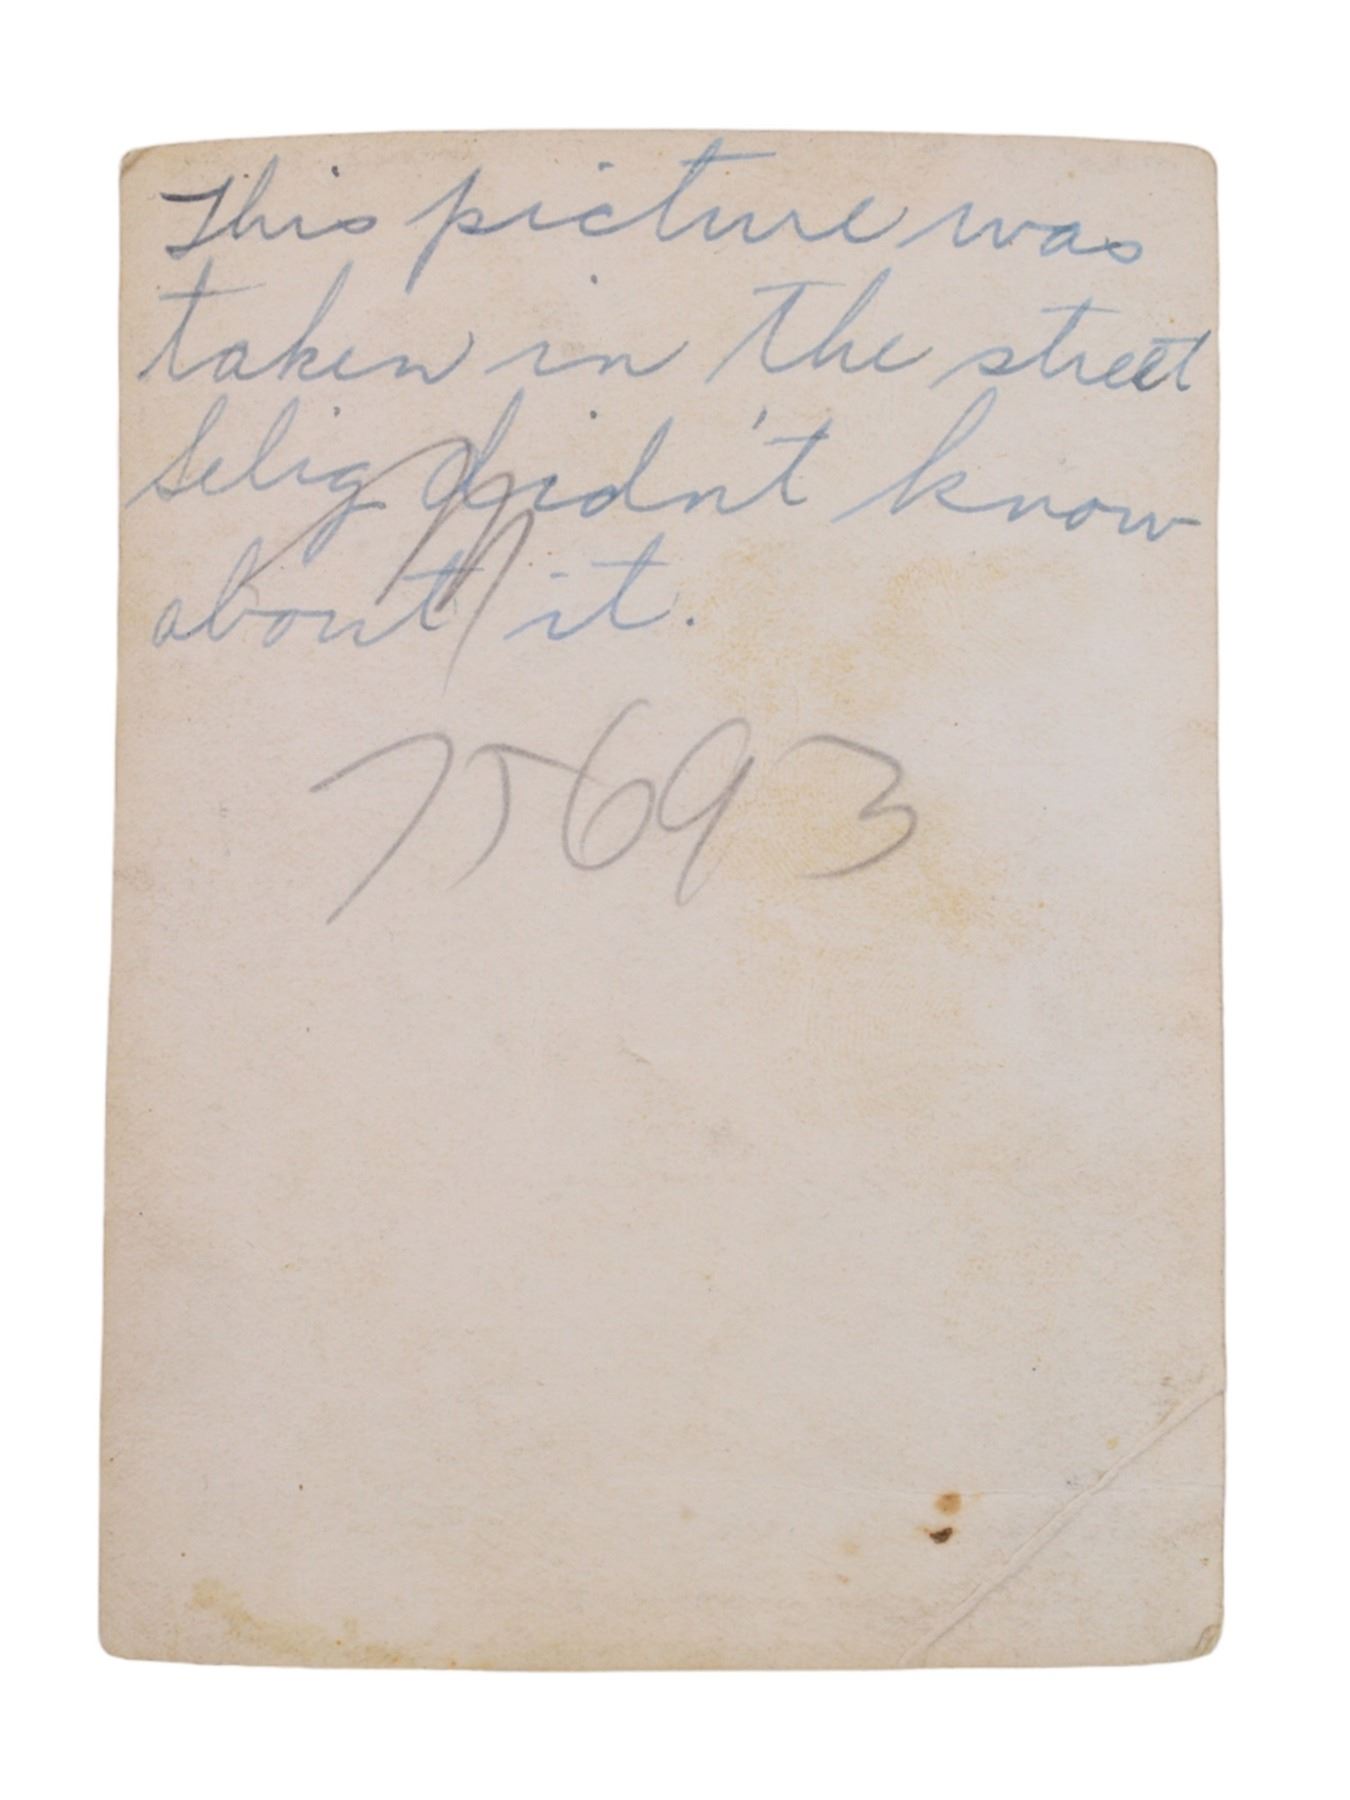 This picture was
taken in the street
Selig didn't know
about it.
75693